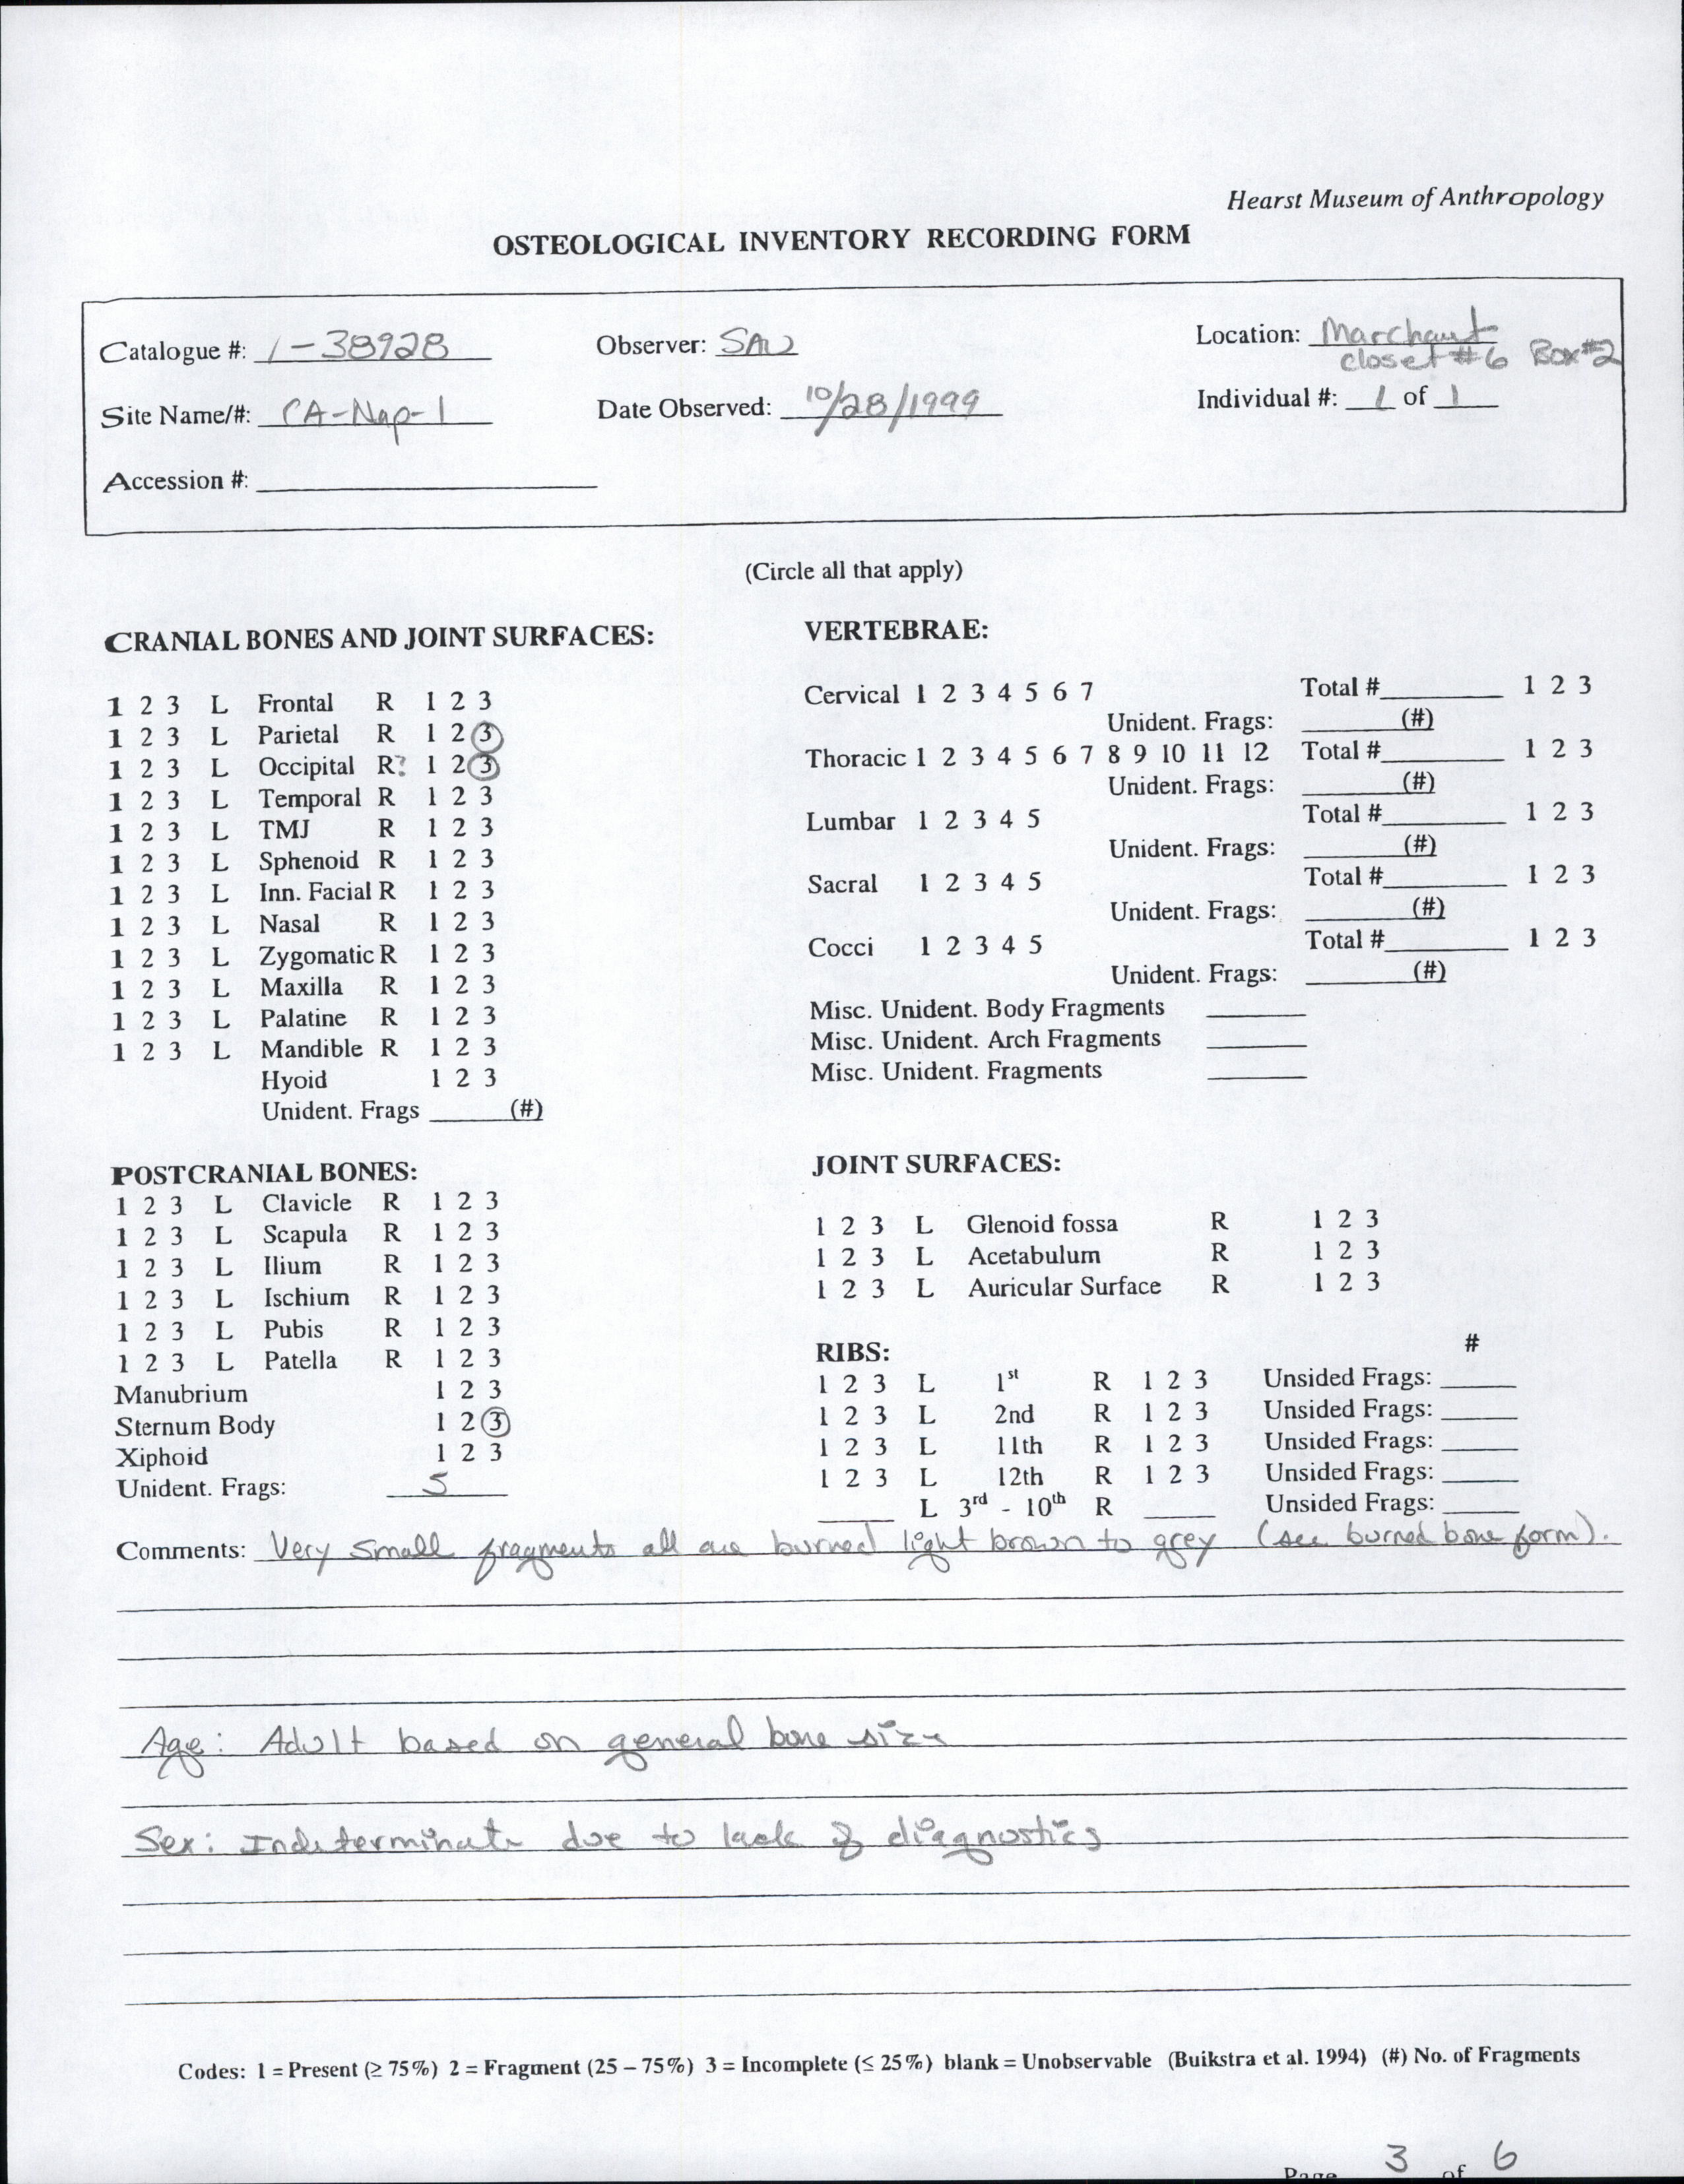 Hearst Museum of Anthropology
OSTEOLOGICAL INVENTORY RECORDING FORM
Catalogue #: 1-38928
Observer: SAW
Location: Marchant
closet #6 Box #2
Site Name/#: CA-Nap-1
Date Observed: 10/28/1999
Individual #: 1 of 1
Accession #:
(Circle all that apply)
CRANIAL BONES AND JOINT SURFACES:
1 2 3 L Frontal R 1 2 3
1 2 3 L Parietal R 1 2 3
1 2 3 L Occipital R? 1 2 3
1 2 3 L Temporal R 1 2 3
1 2 3 L TMJ R 1 2 3
1 2 3 L Sphenoid R 1 2 3
1 2 3 L Inn. Facial R 1 2 3
1 2 3 L Nasal R 1 2 3
1 2 3 L Zygomatic R 1 2 3
1 2 3 L Maxilla R 1 2 3
1 2 3 L Palatine R 1 2 3
1 2 3 L Mandible R 1 2 3
Hyoid 1 2 3
Unident. Frags (#)
VERTEBRAE:
Cervical 1 2 3 4 5 6 7 Total # 1 2 3
Unident. Frags: (#)
Thoracic 1 2 3 4 5 6 7 8 9 10 11 12 Total # 1 2 3
Unident. Frags: (#)
Lumbar 1 2 3 4 5 Total # 1 2 3
Unident. Frags: (#)
Sacral 1 2 3 4 5 Total # 1 2 3
Unident. Frags: (#)
Cocci 1 2 3 4 5 Total # 1 2 3
Unident. Frags: (#)
Misc. Unident. Body Fragments
Misc. Unident. Arch Fragments
Misc. Unident. Fragments
POSTCRANIAL BONES:
1 2 3 L Clavicle R 1 2 3
1 2 3 L Scapula R 1 2 3
1 2 3 L Ilium R 1 2 3
1 2 3 L Ischium R 1 2 3
1 2 3 L Pubis R 1 2 3
1 2 3 L Patella R 1 2 3
Manubrium 1 2 3
Sternum Body 1 2 3
Xiphoid 1 2 3
Unident. Frags: 5
JOINT SURFACES:
1 2 3 L Glenoid fossa R 1 2 3
1 2 3 L Acetabulum R 1 2 3
1 2 3 L Auricular Surface R 1 2 3
RIBS: #
1 2 3 L 1st R 1 2 3 Unsided Frags:
1 2 3 L 2nd R 1 2 3 Unsided Frags:
1 2 3 L 11th R 1 2 3 Unsided Frags:
1 2 3 L 12th R 1 2 3 Unsided Frags:
L 3rd - 10th R Unsided Frags:
Comments: Very small fragments all are burned light brown to grey (see burned bone form).
Age: Adult based on general bone size
Sex: Indeterminate due to lack of diagnostics
Codes: 1 = Present (≥ 75%) 2 = Fragment (25 – 75%) 3 = Incomplete (≤ 25%) blank = Unobservable (Buikstra et al. 1994) (#) No. of Fragments
Page 3 of 6